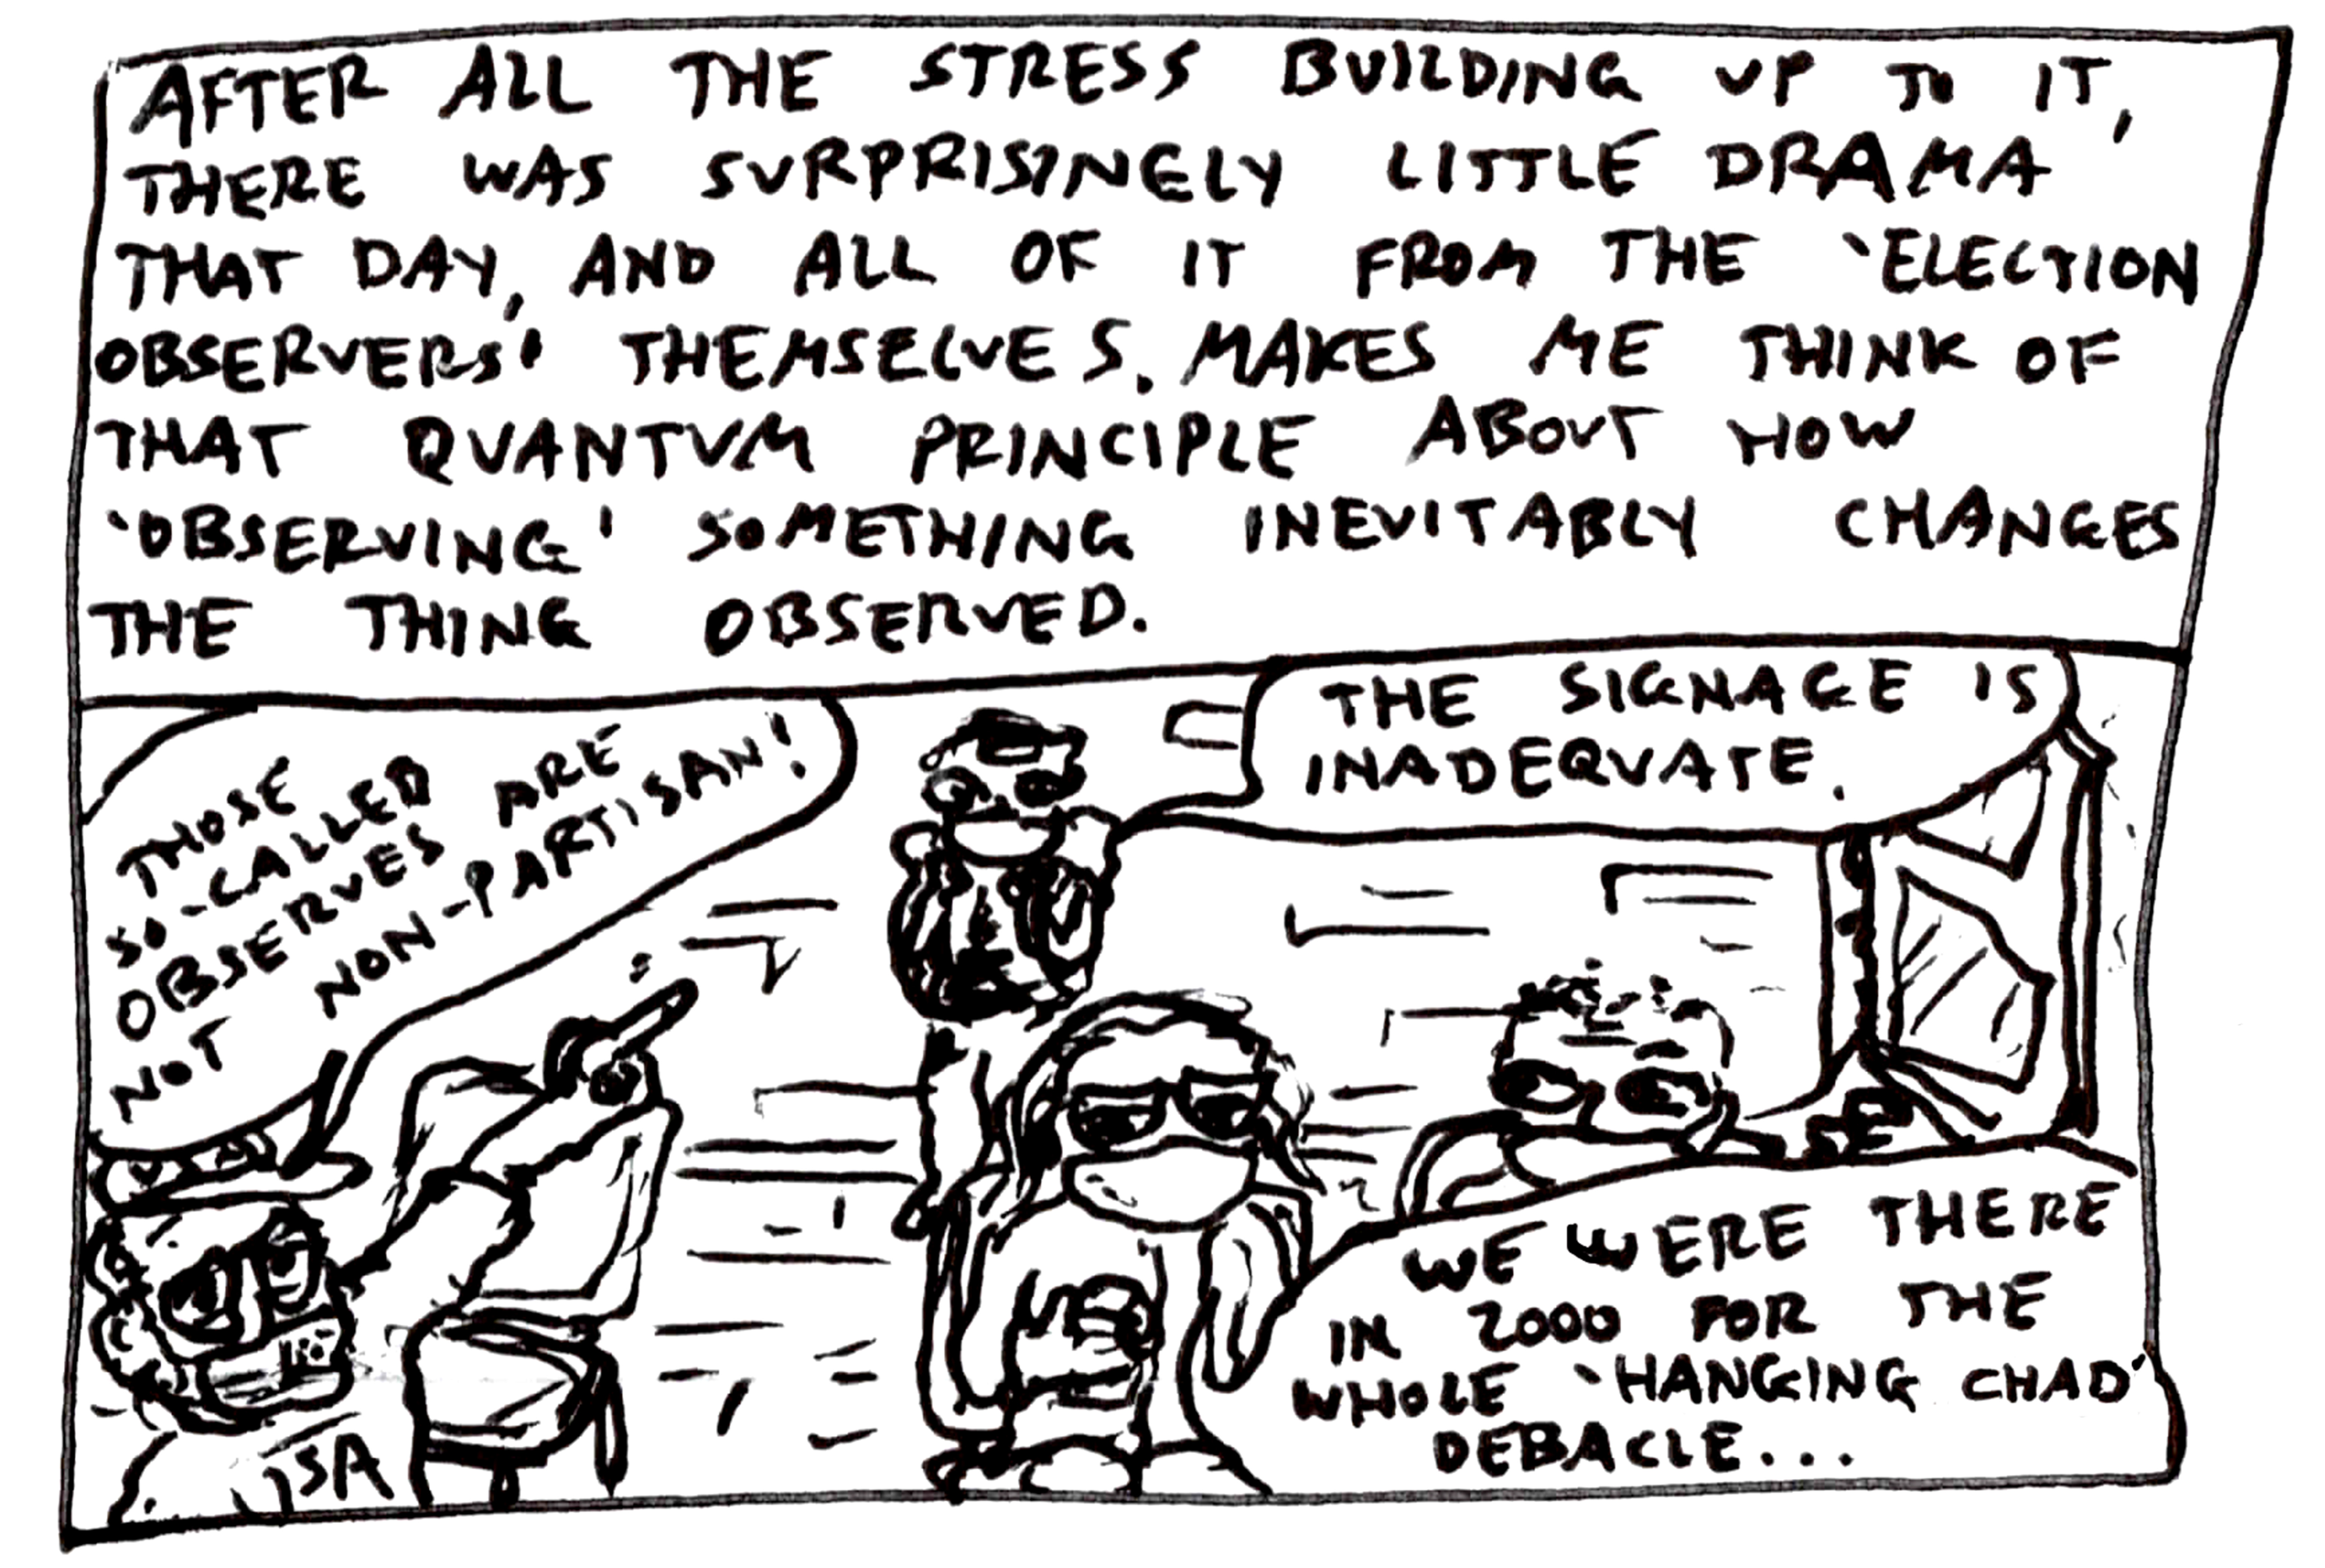 AFTER ALL THE STRESS BUILDING UP TO IT,
THERE WAS SURPRISINGELY LITTLE DRAMA
THAT DAY, AND ALL OF IT FROM THE 'ELECTION
OBSERVERS' THEMSELVES. MAKES ME THINK OF
THAT QUANTUM PRINCIPLE ABOUT HOW
'OBSERVING' SOMETHING INEVITABLY CHANGES
THE THING OBSERVED.
THOSE
SO-CALLED
OBSERVES ARE
NOT NON-PARTISAN!
THE SIGNAGE IS
INADEQUATE.
WE WERE THERE
IN 2000 FOR THE
WHOLE 'HANGING CHAD'
DEBACLE...